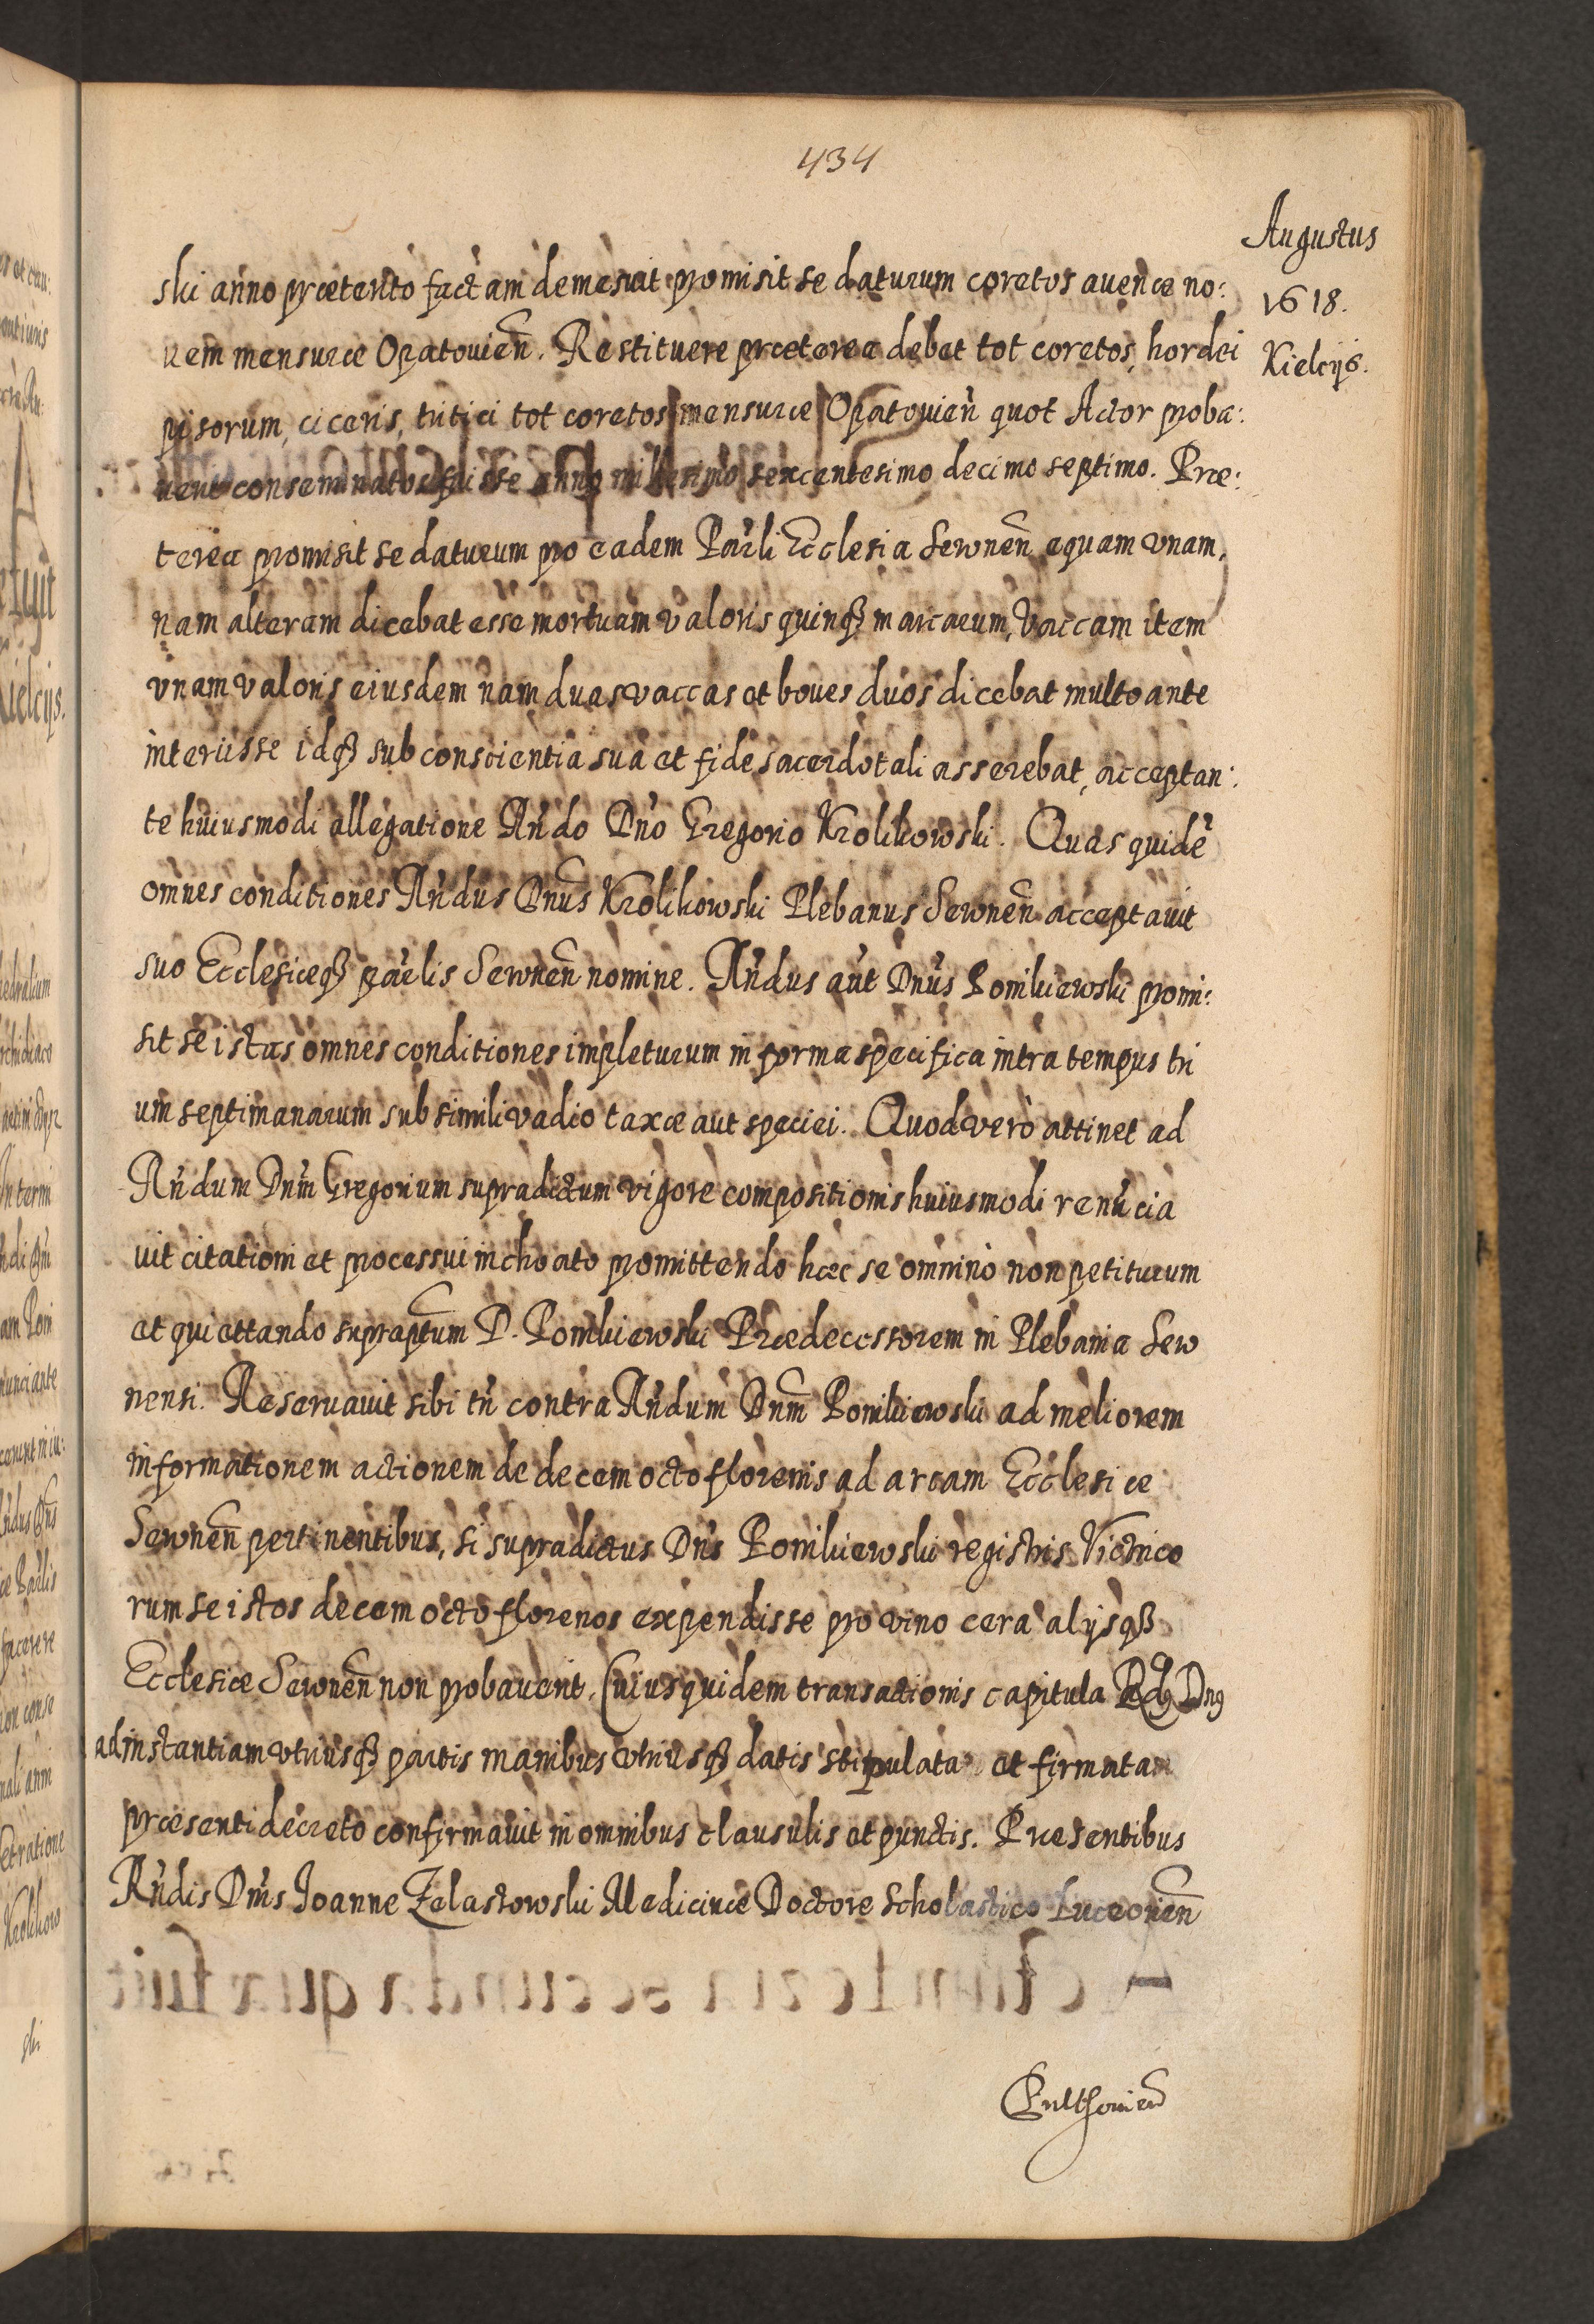 434
Augustus
1618.
Kielcijs.
ski anno præterito factam demessuit promisit se daturum coretos auenæ no:
uem mensuræ Opatouien̄. Restituere præterea debet tot coretos, hordei
pisorum, ciceris, tritici tot coretos mensuræ Opatouien̄ quot Actor proba:
uerit conseminatos fuisse anno millesimo sexcentesimo decimo septimo. Præ:
terea promisit se daturum pro eadem Par̄li Ecclesia Sewnen̄ equam vnam,
nam alteram dicebat esse mortuam valoris quinqꝫ marcarum, Vaccam item
vnam valoris eiusdem nam duas vaccas et boues duos dicebat multo ante
interiisse idqꝫ sub conscientia sua et fide sacerdotali asserebat, acceptan:
te huiusmodi allegatione Rn̄do Dn̄o Gregorio Krolikowski. Quas quidē
omnes conditiones Rn̄dus Dnūs Krolikowski Plebanus Sewnen̄ acceptauit
suo Ecclesiæqꝫ par̄lis Sewnen̄ nomine. Rn̄dus aūt Dnūs Pomikiewski promi:
sit se istas omnes conditiones impleturum in forma specifica intra tempus tri
um septimanarum sub simili vadio taxæ aut speciei. Quod verò attinet ad
Rn̄dum Dnm̄ Gregorium supradictum vigore compositionis huiusmodi renūcia
uit citationi et processui inchoato promittendo hæc se omnino non petiturum
et quiettando supraptum̄ D. Pomikiewski Prædecessorem in Plebania Sew
nensi. Reseruauit sibi tn̄ contra Rn̄dum Dnm̄ Pomikiewski ad meliorem
informationem actionem de decem octo florenis ad arcam Ecclesiæ
Sewnen̄ pertinentibus, si supradictus Dn̄s Pomikiewski registris Victrico
rum se istos decem octo florenos expendisse pro vino cera alijsqꝫ
Ecclesiæ Sewnen̄ non probauerit. Cuius quidem transactionis capitula Rdꝰ Dnꝰ
ad instantiam vtriusqꝫ partis manibus vtriusqꝫ datis stipulata et firmata
præsenti decreto confirmauit in omnibus clausulis et punctis. Præsentibus
Rn̄dis Dn̄is Joanne Zelastowski Medicinæ Doctore Scholastico Luceorien̄
Pulthouien̄